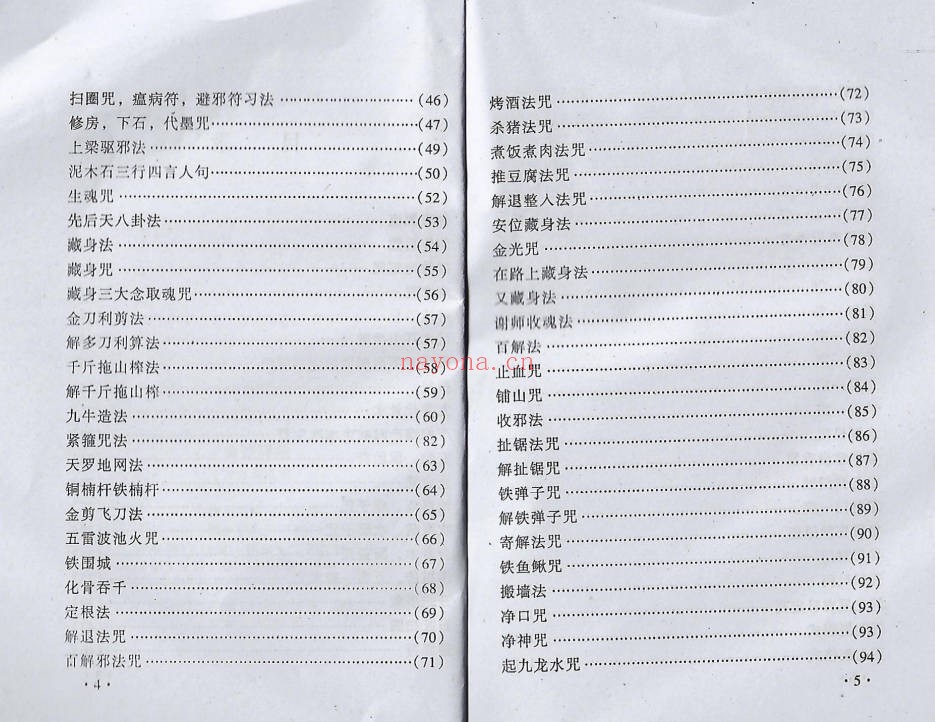 扫圈咒，瘟病符，避邪符习法 ……………… (46)
修房，下石，代墨咒 ……………… (47)
上梁驱邪法 ……………… (49)
泥木石三行四言人句 ……………… (50)
生魂咒 ……………… (52)
先后天八卦法 ……………… (53)
藏身法 ……………… (54)
藏身咒 ……………… (55)
藏身三大念取魂咒 ……………… (56)
金刀利剪法 ……………… (57)
解多刀利算法 ……………… (57)
千斤拖山榨法 ……………… (58)
解千斤拖山榨 ……………… (59)
九牛造法 ……………… (60)
紧箍咒法 ……………… (82)
天罗地网法 ……………… (63)
铜楠杆铁楠杆 ……………… (64)
金剪飞刀法 ……………… (65)
五雷波池火咒 ……………… (66)
铁围城 ……………… (67)
化骨吞千 ……………… (68)
定根法 ……………… (69)
解退法咒 ……………… (70)
百解邪法咒 ……………… (71)
·4·
烤酒法咒 ……………… (72)
杀猪法咒 ……………… (73)
煮饭煮肉法咒 ……………… (74)
推豆腐法咒 ……………… (75)
解退整入法咒 ……………… (76)
安位藏身法 ……………… (77)
金光咒 ……………… (78)
在路上藏身法 ……………… (79)
又藏身法 ……………… (80)
谢师收魂法 ……………… (81)
百解法 ……………… (82)
止血咒 ……………… (83)
铺山咒 ……………… (84)
收邪法 ……………… (85)
扯锯法咒 ……………… (86)
解扯锯咒 ……………… (87)
铁弹子咒 ……………… (88)
解铁弹子咒 ……………… (89)
寄解法咒 ……………… (90)
铁鱼鳅咒 ……………… (91)
搬墙法 ……………… (92)
净口咒 ……………… (93)
净神咒 ……………… (93)
起九龙水咒 ……………… (94)
·5·
nayona.cn